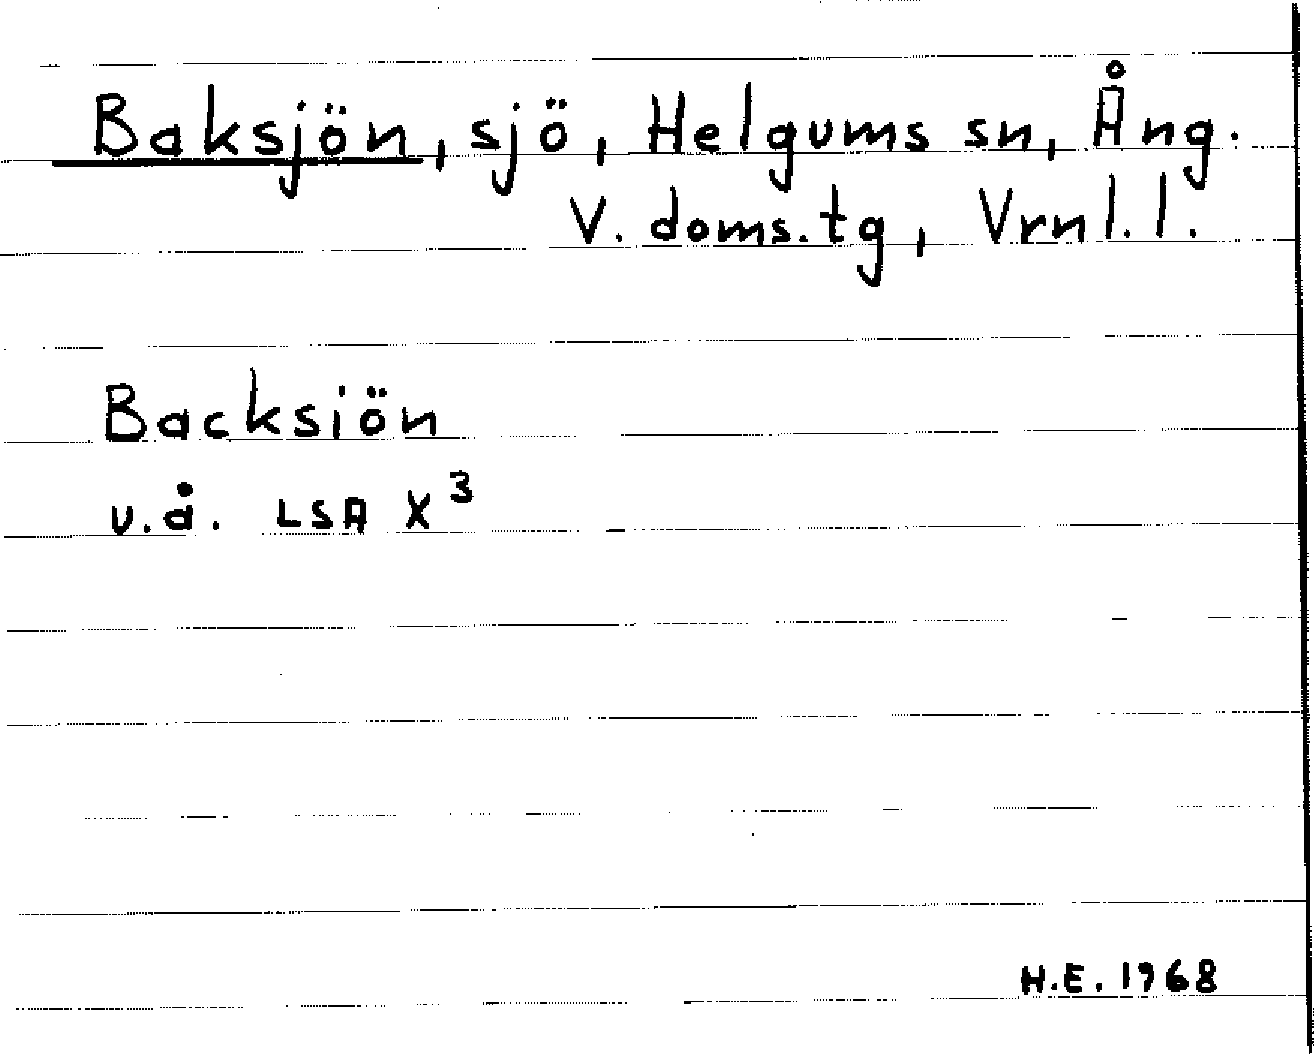 Baksjön, sjö, Helgums sn, Ång.
V. doms.tg, Vrnl. l.
Backsiön
u.å. LSA X³
H.E. 1968